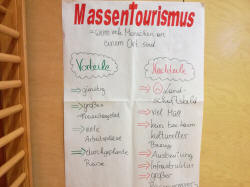 MassenTourismus
= wenn viele Menschen an
einem Ort sind
Vorteile
⇒ günstig
⇒ großes
⇒ viele
Arbeitsplätze
⇒ durchgeplante
Reise
Nachteile
Land-
schaftsbild
⇒ viel Müll
⇒ kein
kultureller
Bezug
⇒ Ausbeutung
⇒ Infrastruktur
⇒ großer